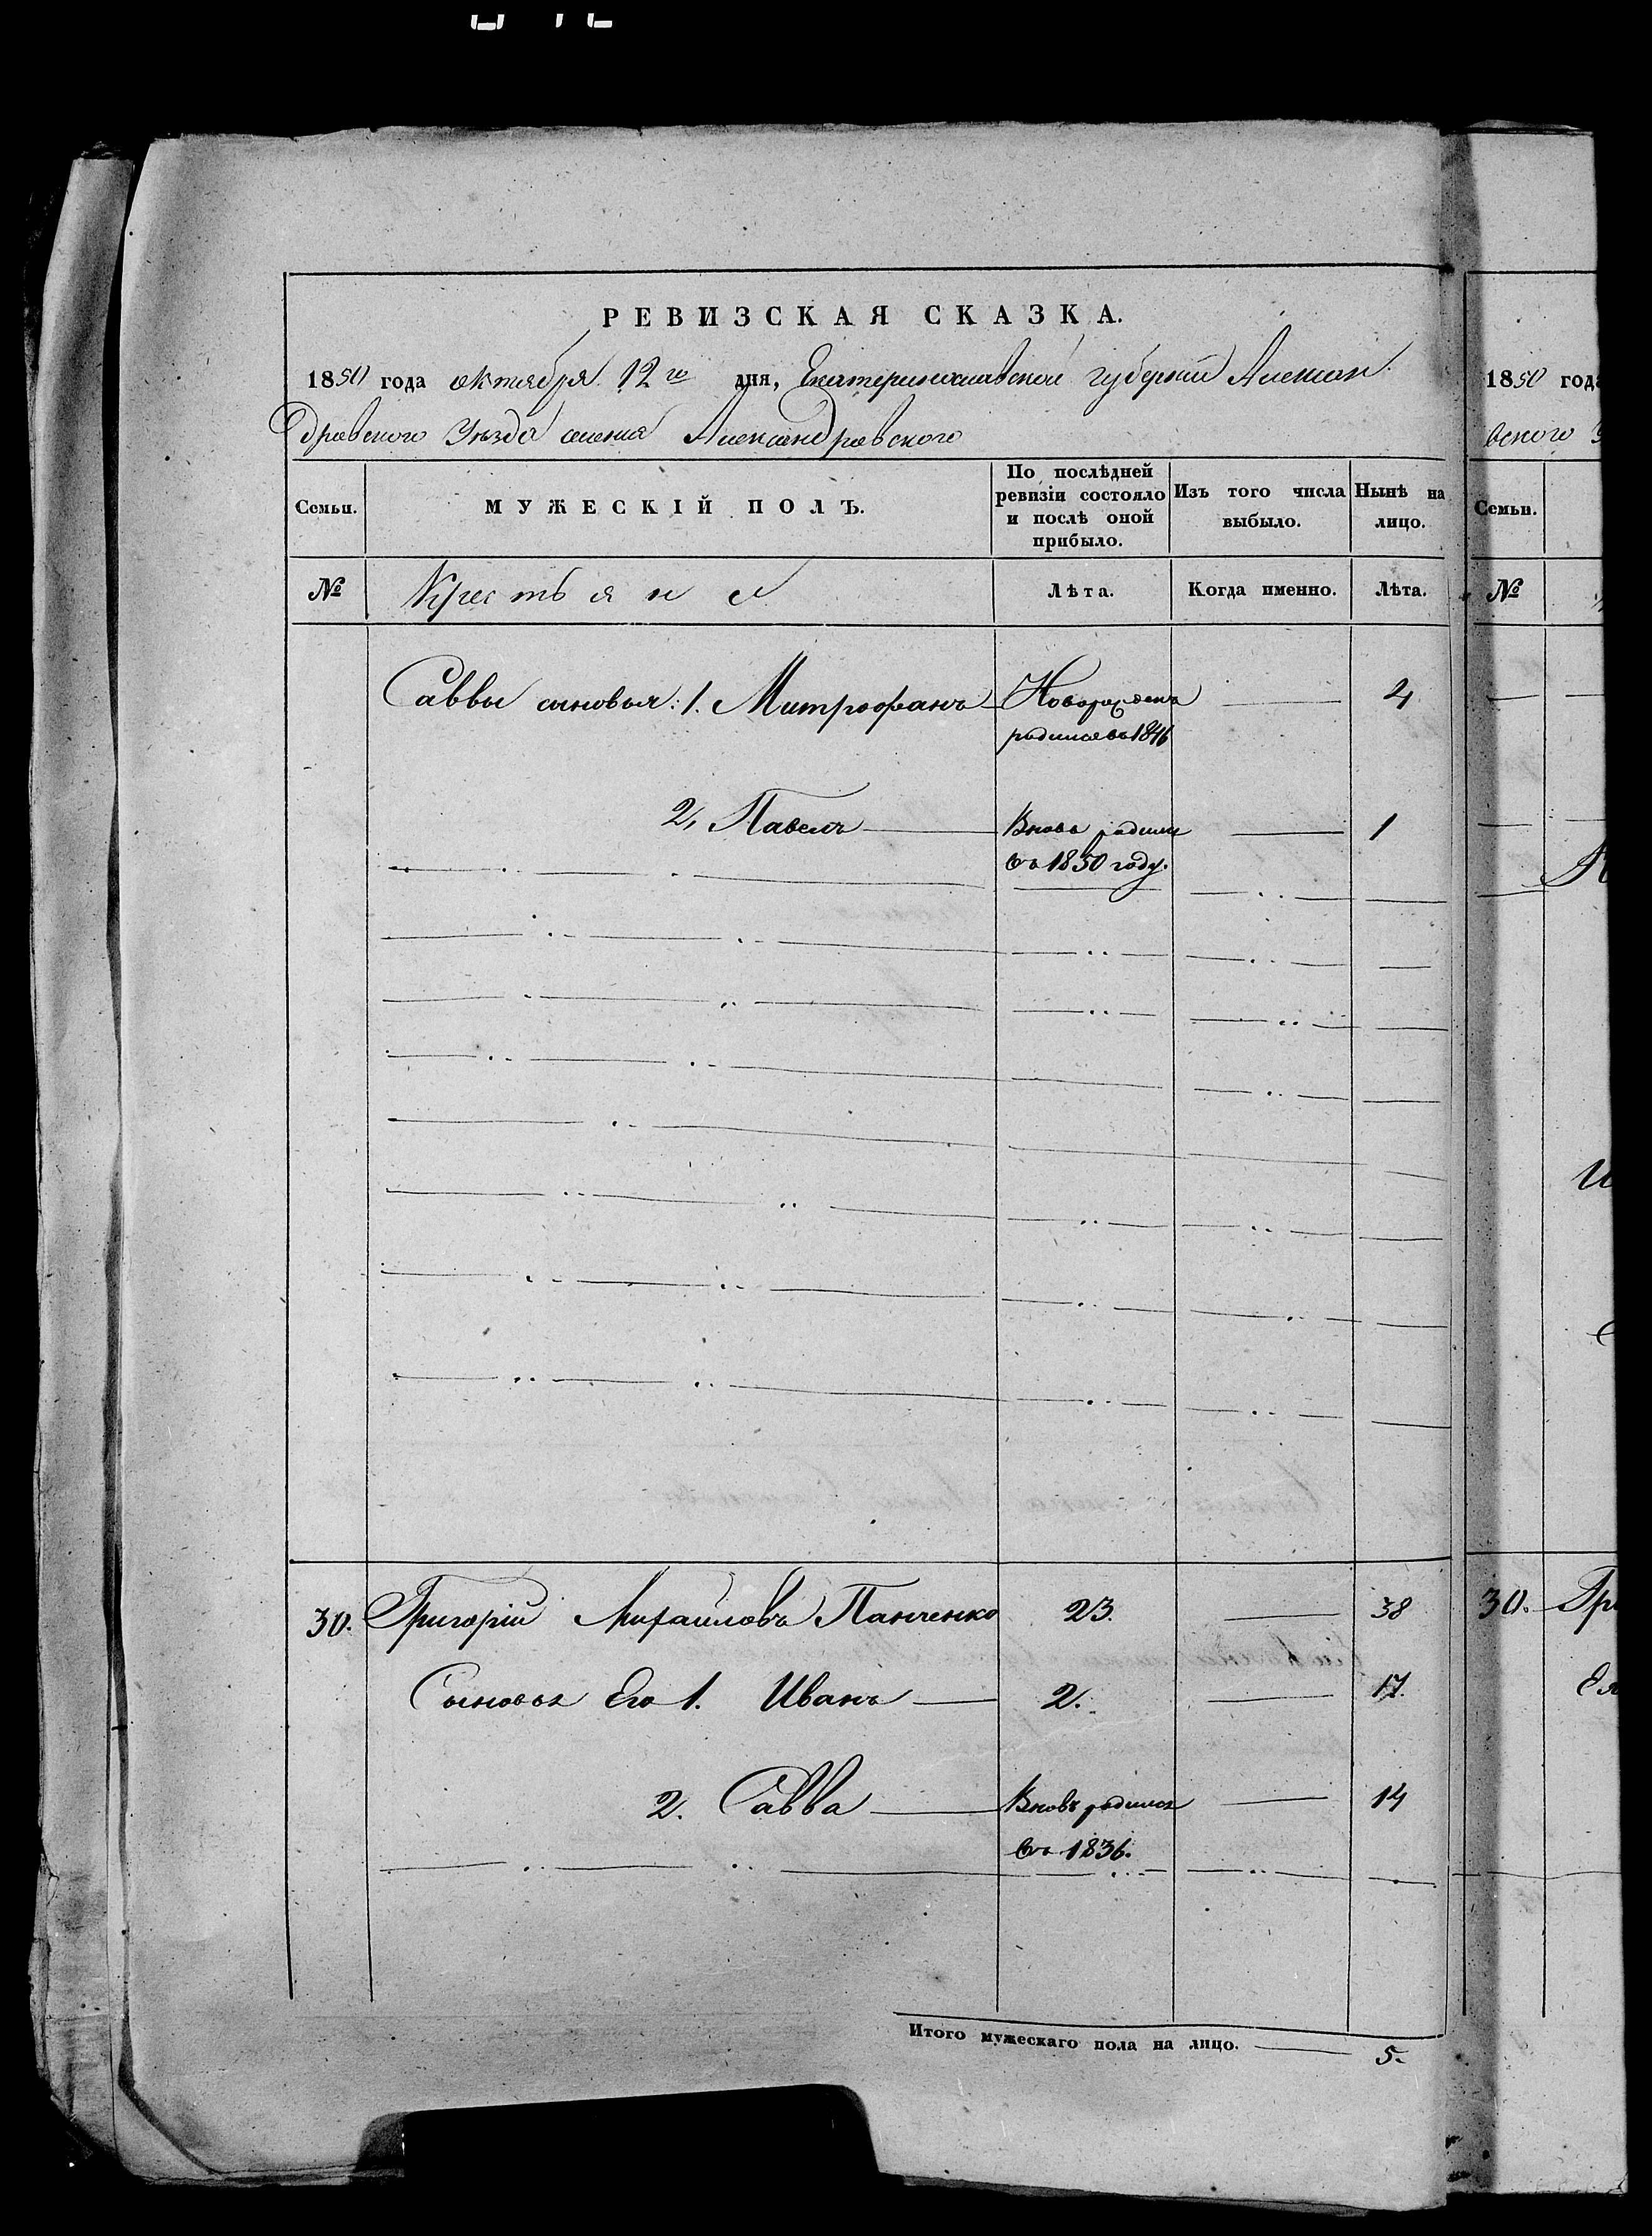 РЕВИЗСКАЯ СКАЗКА.
1850 года октября 12го дня, Екатеринославской губернии Алексан
дровского Уезда селения Александровского
Семьи.
МУЖЕСКІЙ ПОЛЪ.
По послѣдней
ревизіи состояло
и послѣ оной
прибыло.
Изъ того числа
выбыло.
Нынѣ на
лицо.
№ Крестьяне Лѣта. Когда именно. Лѣта.
Саввы сыновья: 1. Митрофанъ Новорожденъ 4
родился въ 1846
2, Павелъ Вновь родился 1
въ 1850 году.
30. Григорій Михайловъ Панченко 23. 38
Сыновья Его 1. Иванъ 2. 17.
2. Савва Вновь родился 14
въ 1836.
Итого мужескаго пола на лицо. 5.
1850 года
вского
Семьи.
№
30.